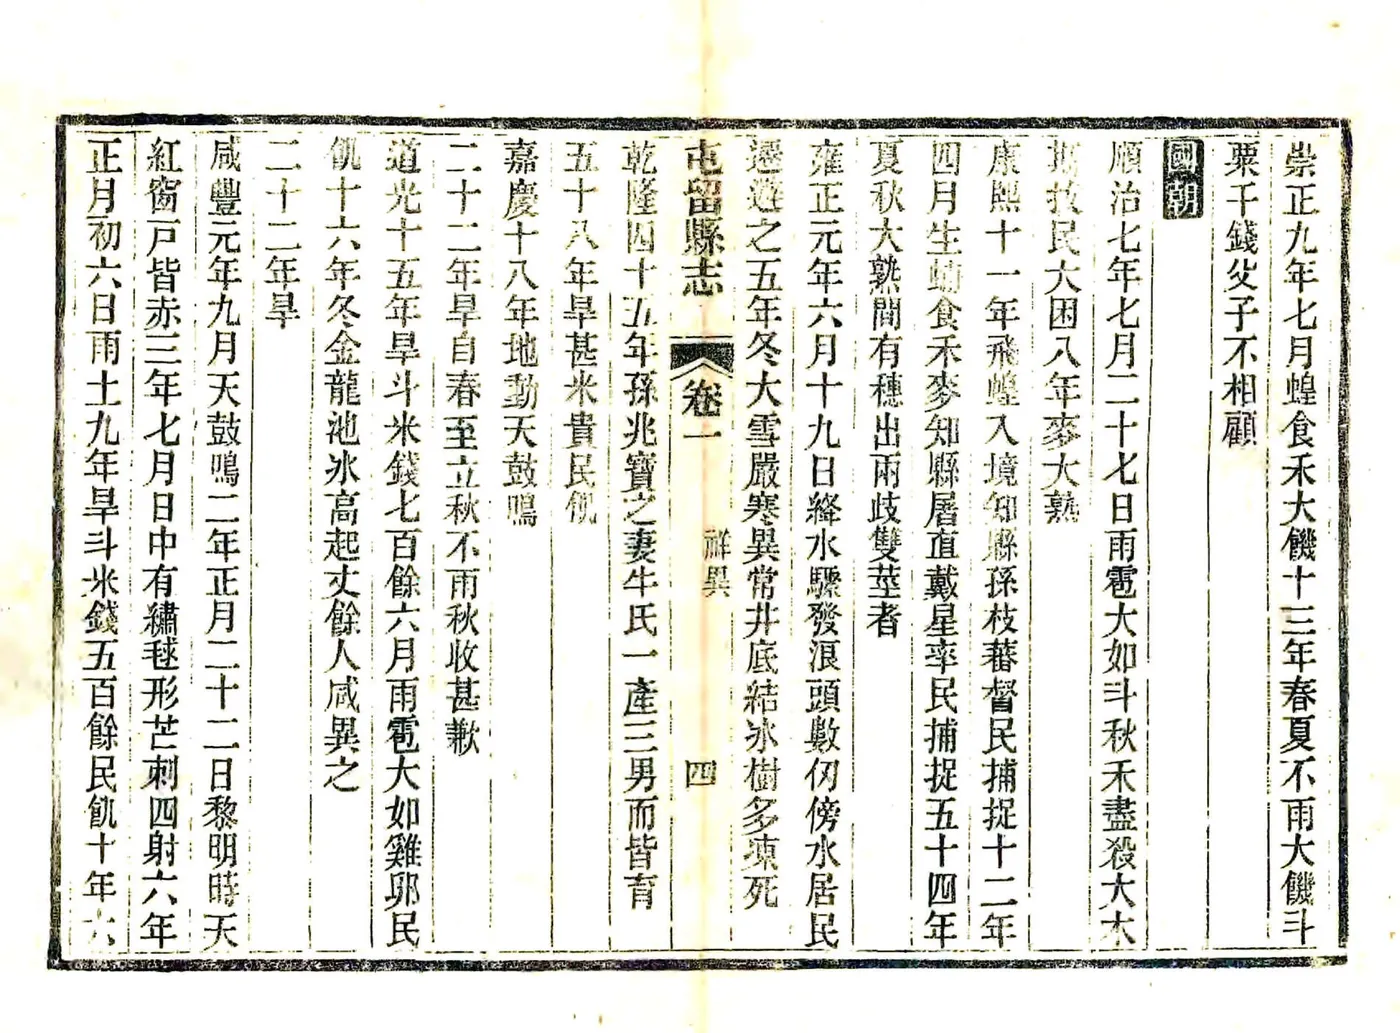 崇正九年七月蝗食禾大饑十三年春夏不雨大饑斗
粟千錢父子不相顧
國朝
順治七年七月二十七日雨雹大如斗秋禾盡殺大木
拔民大困八年麥大熟
康熙十一年飛蝗入境知縣孫枝蕃督民捕捉十二年
四月生蝻食禾麥知縣屠直戴星率民捕捉五十四年
夏秋大熟間有穗出兩歧雙莖者
雍正元年六月十九日絳水驟發浪頭數仞傍水居民
遷避之五年冬大雪嚴寒異常井底結冰樹多凍死
屯留縣志 卷一 祥異 四
乾隆四十五年孫兆寶之妻牛氏一產三男而皆育
五十八年旱甚米貴民飢
嘉慶十八年地動天鼓鳴
二十二年旱自春至立秋不雨秋收甚歉
道光十五年旱斗米錢七百餘六月雨雹大如雞卵民
飢十六年冬金龍池冰高起丈餘人咸異之
二十二年旱
咸豐元年九月天鼓鳴二年正月二十二日黎明時天
紅窗戶皆赤三年七月日中有繡毬形芒刺四射六年
正月初六日雨土九年旱斗米錢五百餘民飢十年六